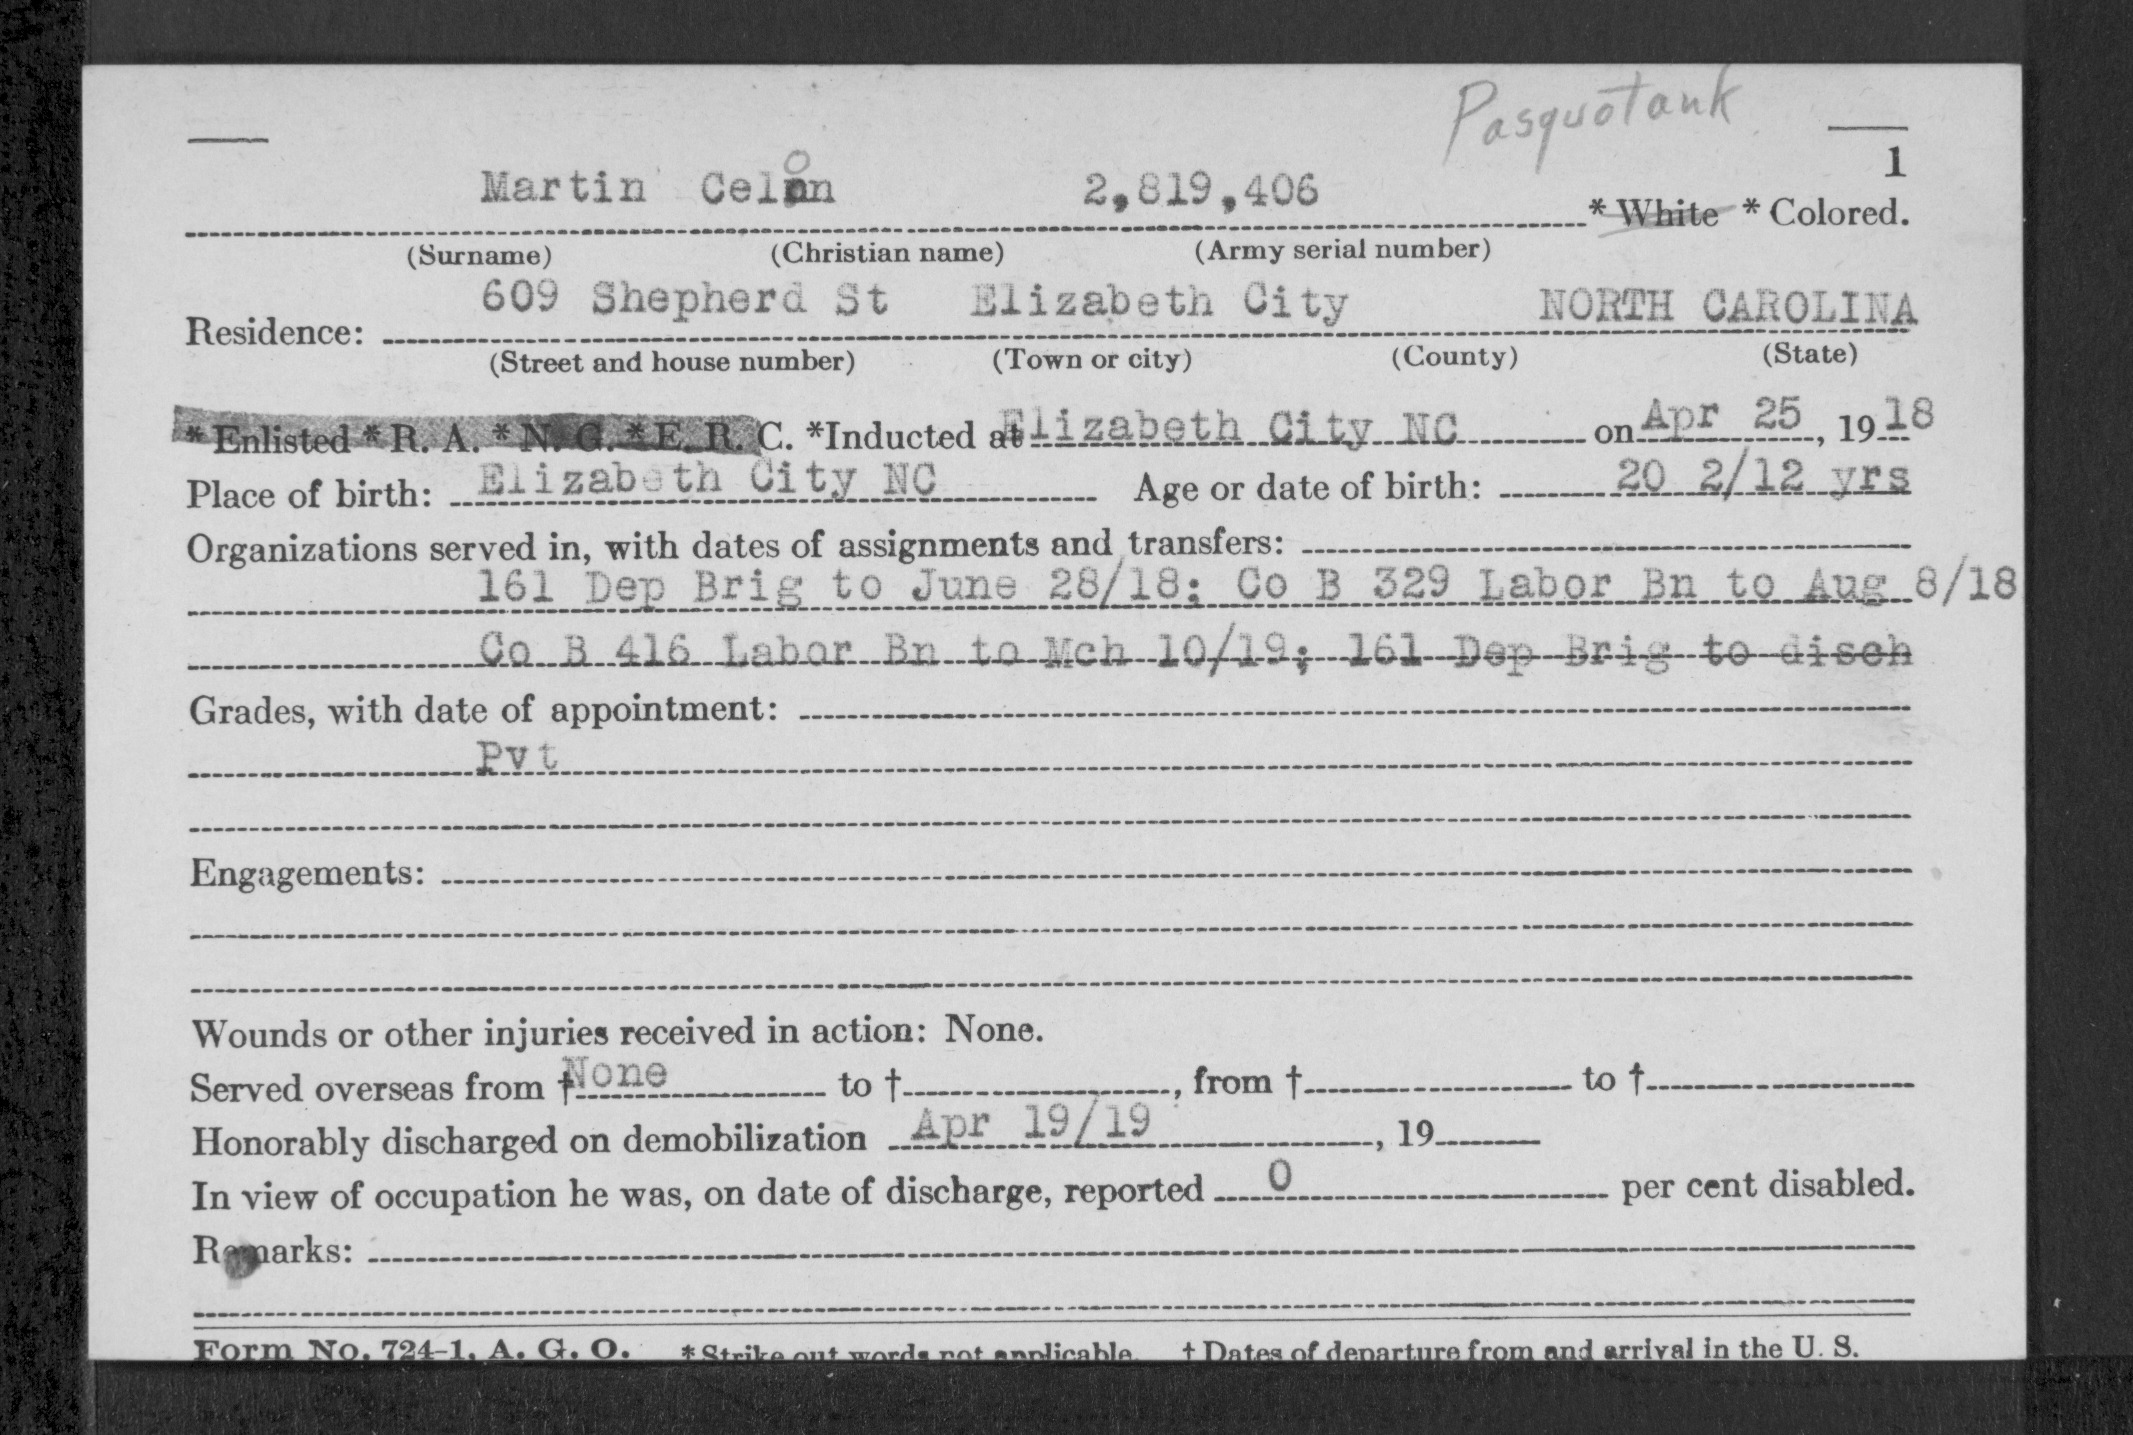 Pasquotank
1
Martin Celon 2,819,406 * White * Colored.
(Surname) (Christian name) (Army serial number)
609 Shepherd St Elizabeth City NORTH CAROLINA
Residence:
(Street and house number) (Town or city) (County) (State)
* Enlisted * R. A. * N. G. * E. R. C. *Inducted at Elizabeth City NC on Apr 25, 1918
Place of birth: Elizabeth City NC Age or date of birth: 20 2/12 yrs
Organizations served in, with dates of assignments and transfers:
161 Dep Brig to June 28/18; Co B 329 Labor Bn to Aug 8/18
Co B 416 Labor Bn to Mch 10/19; 161 Dep Brig to disch
Grades, with date of appointment:
Pvt
Engagements:
Wounds or other injuries received in action: None.
Served overseas from † None to †, from † to †
Honorably discharged on demobilization Apr 19/19, 19
In view of occupation he was, on date of discharge, reported 0 per cent disabled.
Remarks:
Form No. 724-1, A. G. O. * Strike out words not applicable. † Dates of departure from and arrival in the U. S.